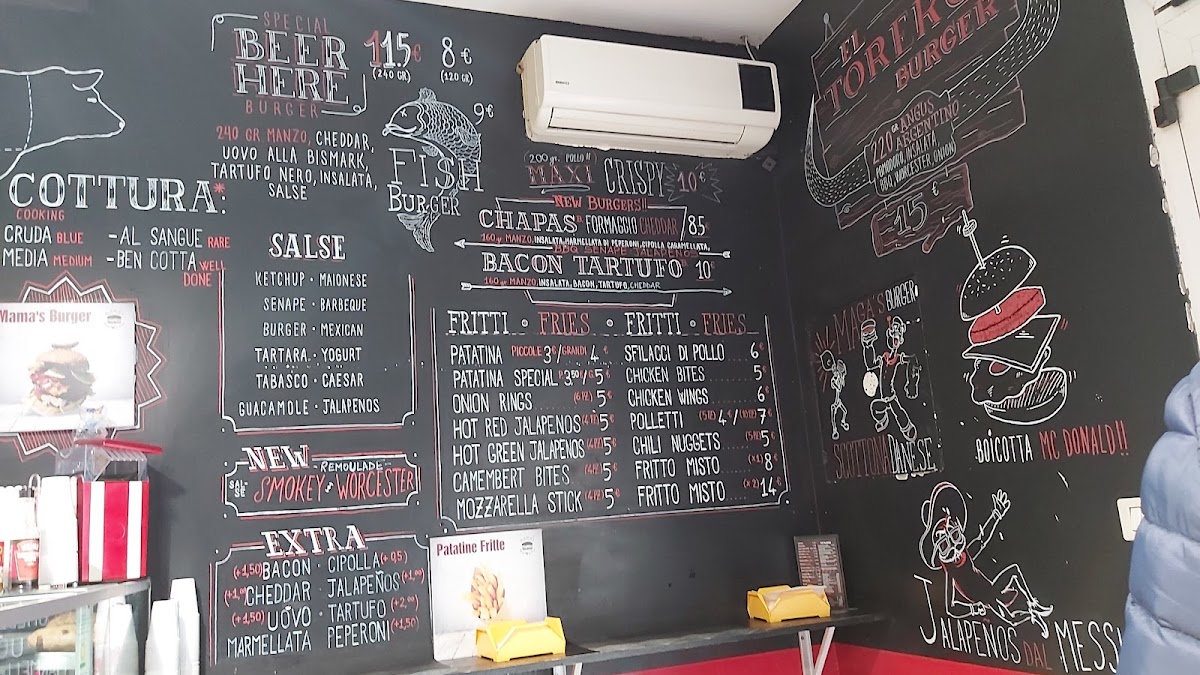 SPECIAL
BEER
HERE
BURGER
11.5€
(240 GR)
8€
(120 GR)
240 GR MANZO, CHEDDAR,
UOVO ALLA BISMARK,
TARTUFO NERO, INSALATA,
SALSE
9€
FISH
BURGER
200 gr. POLLO !!
MAXI CRISPY 10€
NEW BURGERS!!
CHAPAS FORMAGGIO CHEDDAR / 8.5
160 gr MANZO, INSALATA, MARMELLATA DI PEPERONI, CIPOLLA CARAMELLATA,
BBQ SENAPE JALAPENOS
BACON TARTUFO 10€
160 gr MANZO, INSALATA, BACON, TARTUFO, CHEDDAR
COTTURA*:
COOKING
CRUDA BLUE - AL SANGUE RARE
MEDIA MEDIUM - BEN COTTA WELL
DONE
Mama's Burger
SALSE
KETCHUP · MAIONESE
SENAPE · BARBEQUE
BURGER · MEXICAN
TARTARA · YOGURT
TABASCO · CAESAR
GUACAMOLE · JALAPENOS
NEW
- REMOULADE -
SALSE SMOKEY WORCESTER
EXTRA
(+1,50) BACON · CIPOLLA (+0,5)
CHEDDAR · JALAPEÑOS (+1,00)
(+1,50) UOVO · TARTUFO (+2,00)
MARMELLATA PEPERONI (+1,50)
FRITTI · FRIES · FRITTI · FRIES
PATATINA PICCOLE 3€/GRANDI 4€
PATATINA SPECIAL P. 3,50€/G. 5€
ONION RINGS 5€
HOT RED JALAPENOS 5€
HOT GREEN JALAPENOS 5€
CAMEMBERT BITES 5€
MOZZARELLA STICK 5€
SFILACCI DI POLLO 6€
CHICKEN BITES 5€
CHICKEN WINGS 6€
POLLETTI 4€/ 7€
CHILI NUGGETS 5€
FRITTO MISTO (x1) 8€
FRITTO MISTO (x2) 14€
Patatine Fritte
EL
TORERO
BURGER
220 GR ANGUS
ARGENTINO
POMODORO, INSALATA,
BBQ, WORCESTER, ONION
15€
MAGA'S BURGER
SCOTTONA DANESE
BOICOTTA MC DONALD!!
JALAPENOS DAL MESS